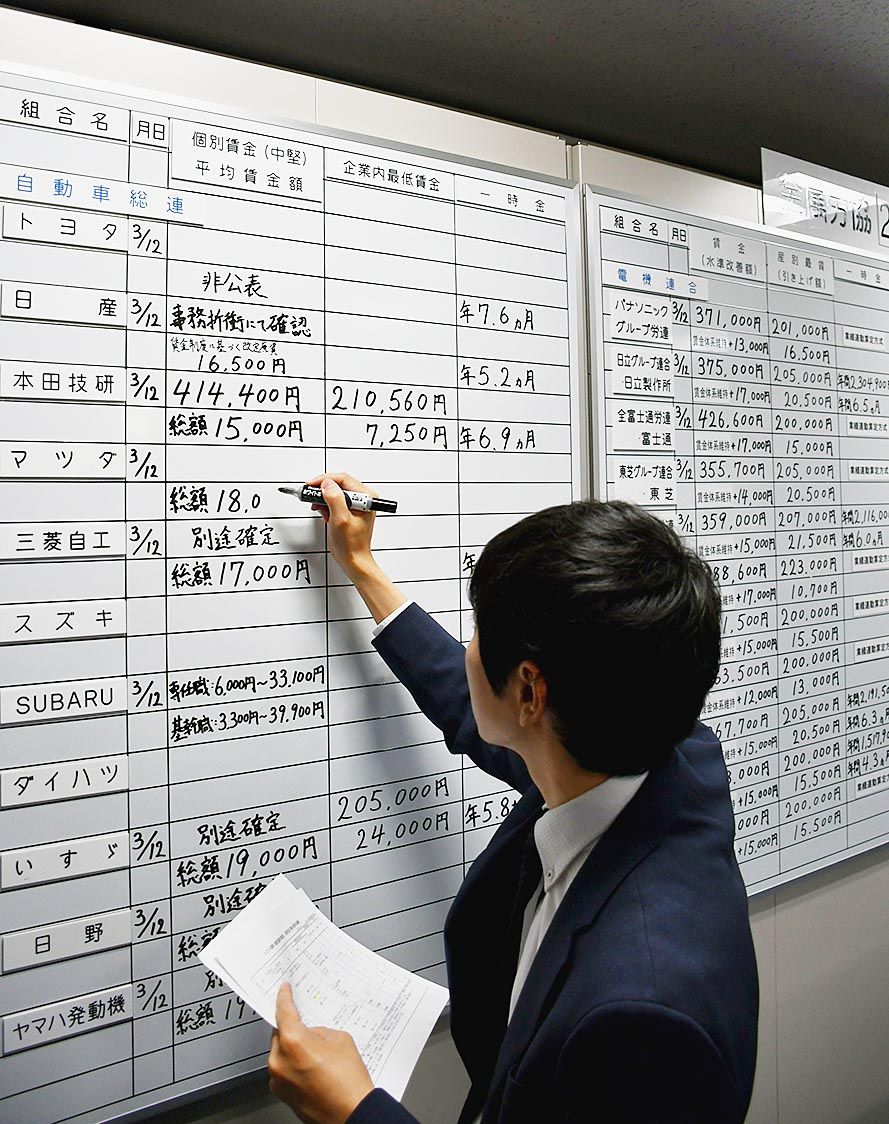 組合名 月日 個別賃金(中堅) 平均賃金額 企業内最低賃金 一時金
自動車総連
トヨタ 3/12
非公表
日産 3/12 事務折衝にて確認 年7.6ヵ月
賃金制度に基づく改定原資
16,500円 年5.2ヵ月
本田技研 3/12 414,400円 210,560円
総額15,000円 7,250円 年6.9ヵ月
マツダ 3/12
総額18.0
三菱自工 3/12 別途確定
総額17,000円 年
スズキ
SUBARU 3/12 専任職:6,000円~33,100円
基幹職:3,300円~39,900円
ダイハツ
205,000円
いすゞ 3/12 別途確定 24,000円 年5.8
総額19,000円
日野 3/12 別途
総額
ヤマハ発動機 3/12 別
総額19
金属労協 2
組合名 月日 賃金 (水準改善額) 産別最賃 (引き上げ額) 一時金
電機連合
パナソニックグループ労連 3/12 371,000円 201,000円 業績連動算定方式
賃金体系維持+13,000円 16,500円
日立グループ連合・日立製作所 3/12 375,000円 205,000円 年間2,304,900
賃金体系維持+17,000円 20,500円 年間6.5ヵ月
全富士通労連・富士通 3/12 426,600円 200,000円 業績連動算定方式
賃金体系維持+17,000円 15,000円
東芝グループ連合・東芝 3/12 355,700円 205,000円 業績連動算定方式
賃金体系維持+14,000円 20,500円
3/12 359,000円 207,000円 年間2,116,000
賃金体系維持+15,000円 21,500円 年間6.0ヵ月
88,600円 223,000円 業績連動算定方
維持+17,000円 10,700円
1,500円 200,000円 業績連動算定方
維持+15,000円 15,500円
3,500円 200,000円 業績連動算定方
維持+12,000円 13,000円
67,700円 205,000円 年間2,191,50
+15,000円 20,500円 年間6.3ヵ月
3,000円 200,000円 年間1,517,90
+15,000円 15,500円 年間4.3ヵ月
,000円 200,000円 業績連動算定方
+15,000円 15,500円